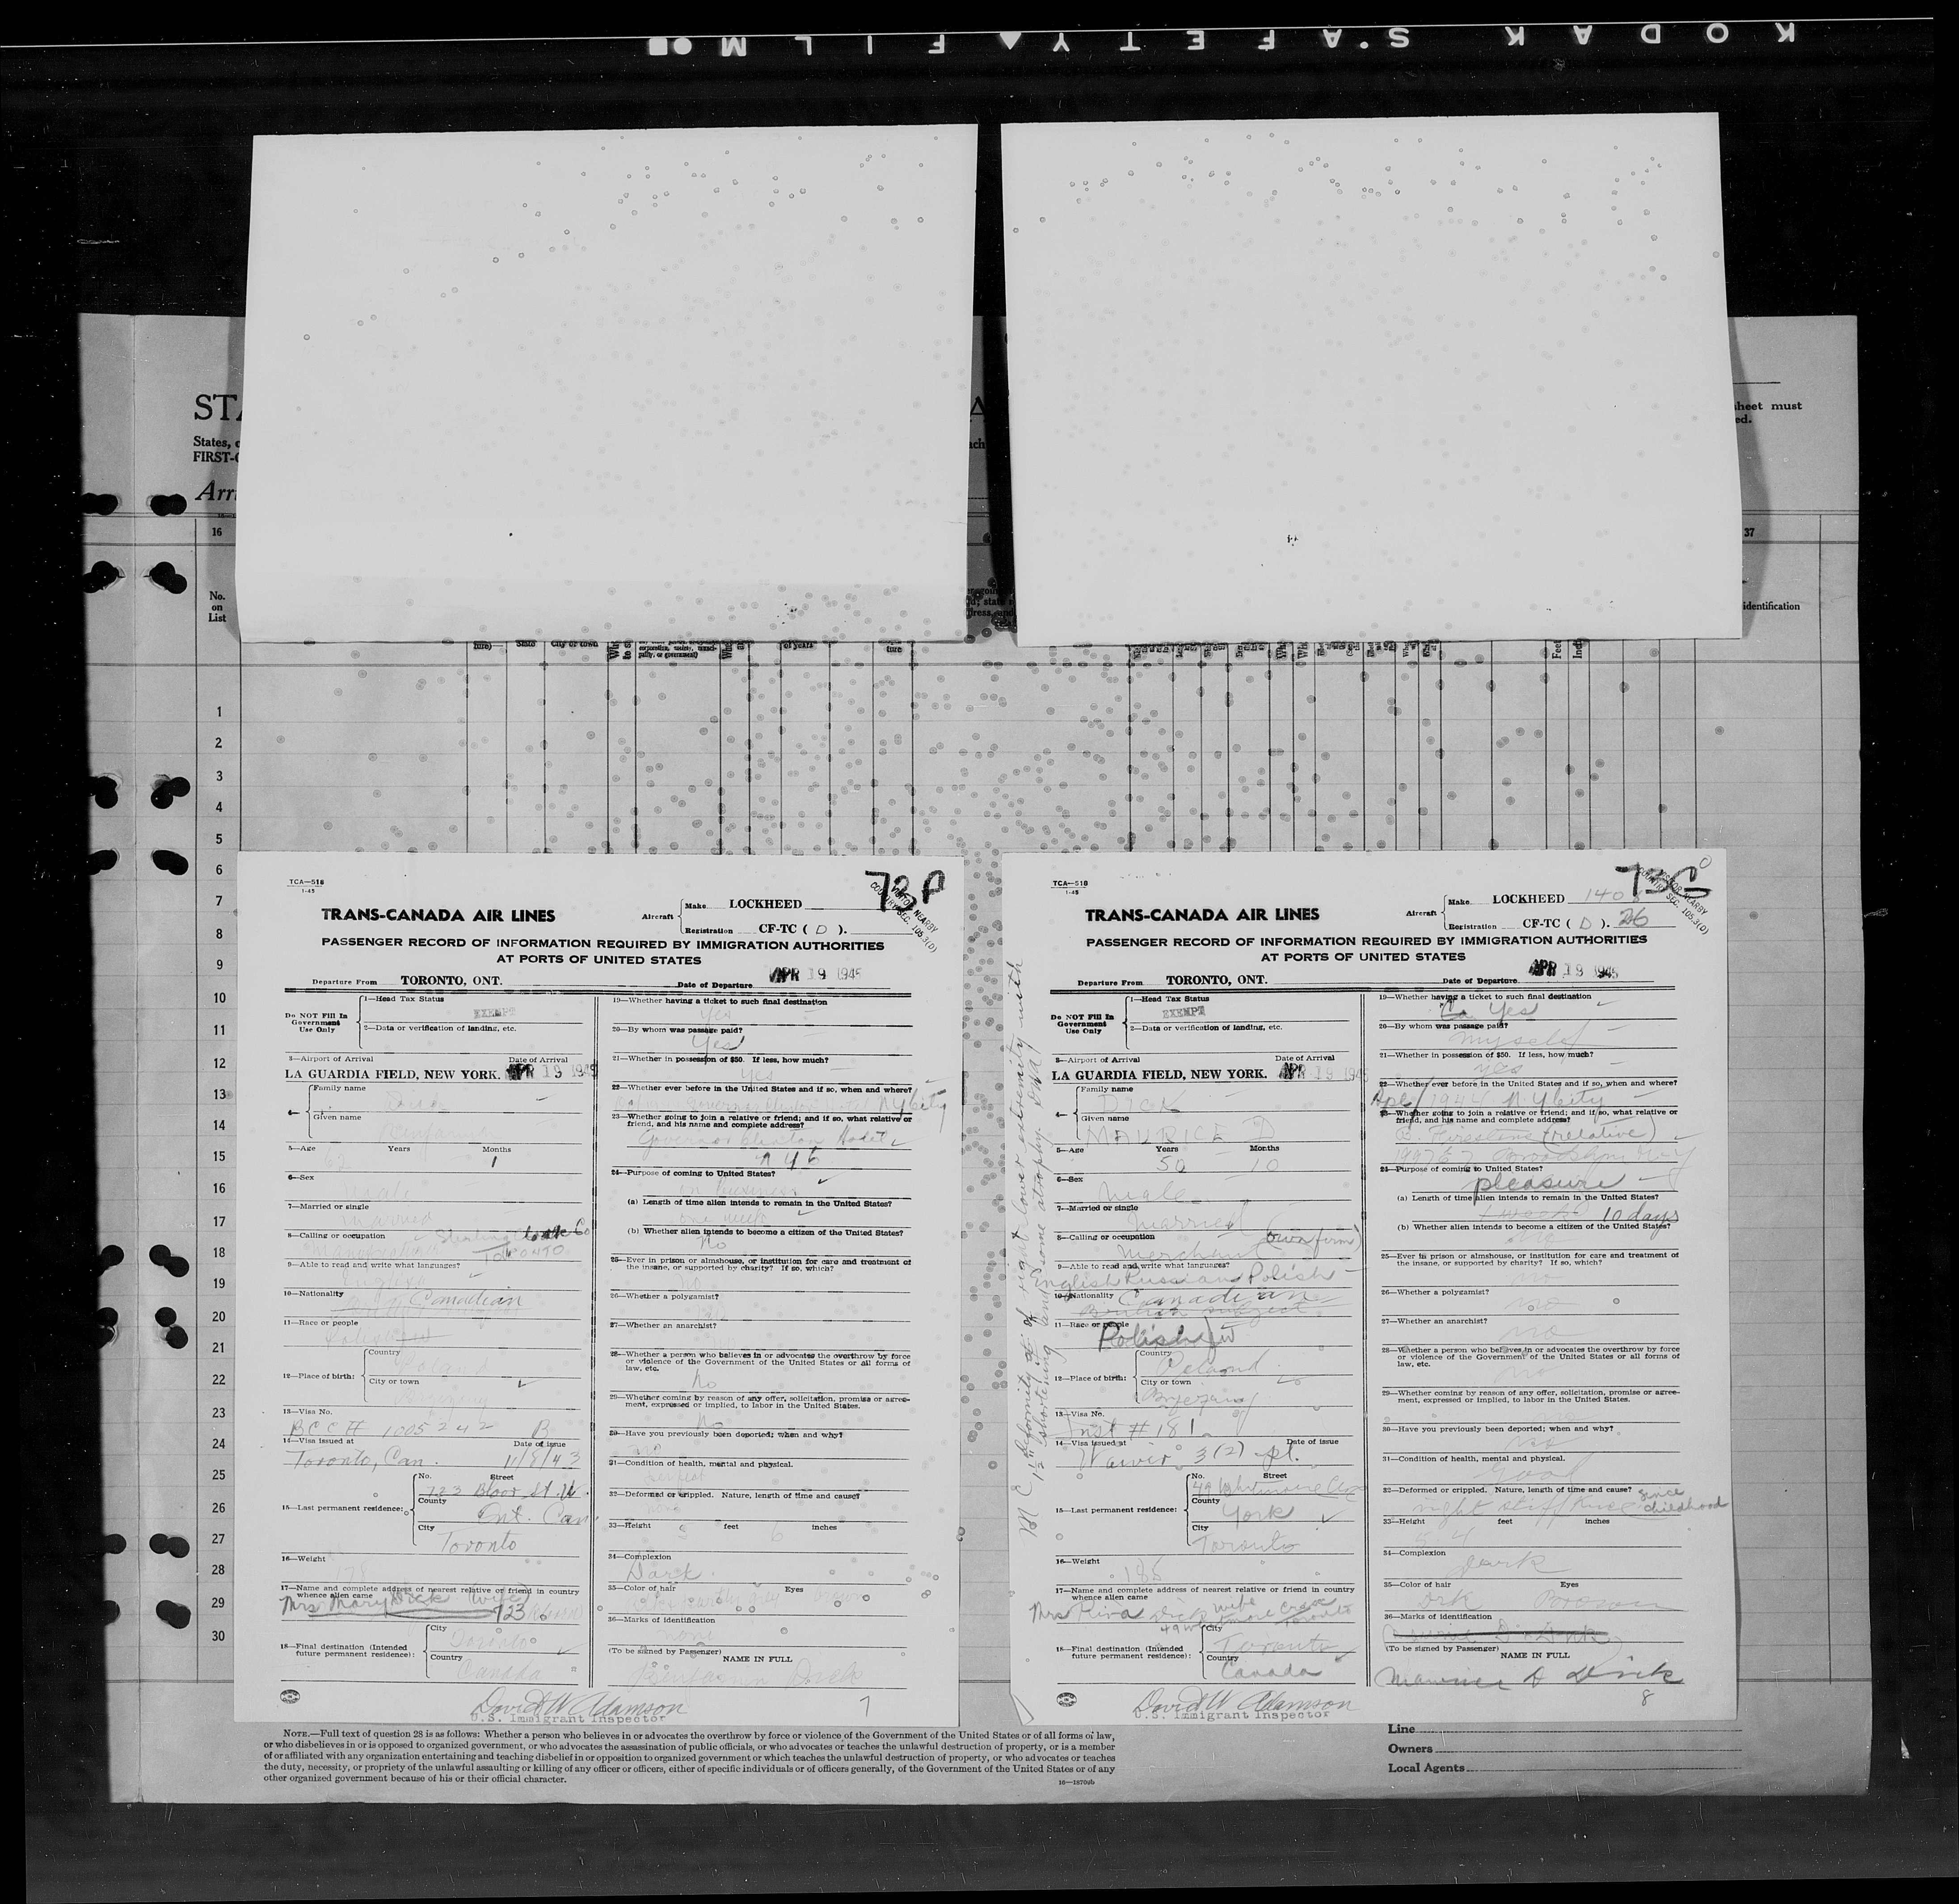 KODAK SAFETY FILM
STA
States, o
FIRST-C
Arri
sheet must
ed.
16
37
No.
on
List
identification
ture)
State
City or town
of years
ture
Feet
1
2
3
4
5
6
7
8
9
10
11
12
13
14
15
16
17
18
19
20
21
22
23
24
25
26
27
28
29
30
TCA—518
1-45
73
TRANS-CANADA AIR LINES
Aircraft
Make LOCKHEED
Registration CF-TC ( D ).
PASSENGER RECORD OF INFORMATION REQUIRED BY IMMIGRATION AUTHORITIES
AT PORTS OF UNITED STATES
Departure From TORONTO, ONT. Date of Departure APR 19 1945
Do NOT Fill In
Government
Use Only
1—Head Tax Status
EXEMPT
2—Data or verification of landing, etc.
3—Airport of Arrival Date of Arrival
LA GUARDIA FIELD, NEW YORK. APR 19 1945
4—
Family name
Given name
5—Age Years Months
62 1
6—Sex
Male
7—Married or single
Married
8—Calling or occupation
Toronto
9—Able to read and write what languages?
English
10—Nationality
Canadian
11—Race or people
12—Place of birth:
Country
City or town
13—Visa No.
BCC# 1005242 B
14—Visa issued at Date of issue
Toronto, Can. 11/8/43
15—Last permanent residence:
No. Street
723 Bloor St. W.
County
Ont. Can.
City
Toronto
16—Weight
17—Name and complete address of nearest relative or friend in country
whence alien came
Mrs Mary Dick (wife)
723
18—Final destination (Intended
future permanent residence):
City
Toronto
Country
Canada
19—Whether having a ticket to such final destination
Yes
20—By whom was passage paid?
Yes
21—Whether in possession of $50. If less, how much?
Yes
22—Whether ever before in the United States and if so, when and where?
N Y City
23—Whether going to join a relative or friend; and if so, what relative or
friend, and his name and complete address?
Governor Clinton Hotel
N Y C
24—Purpose of coming to United States?
on business
(a) Length of time alien intends to remain in the United States?
one week
(b) Whether alien intends to become a citizen of the United States?
No
25—Ever in prison or almshouse, or institution for care and treatment of
the insane, or supported by charity? If so, which?
No
26—Whether a polygamist?
27—Whether an anarchist?
28—Whether a person who believes in or advocates the overthrow by force
or violence of the Government of the United States or all forms of
law, etc.
No
29—Whether coming by reason of any offer, solicitation, promise or agree-
ment, expressed or implied, to labor in the United States.
No
30—Have you previously been deported; when and why?
no
31—Condition of health, mental and physical.
perfect
32—Deformed or crippled. Nature, length of time and cause?
none
33—Height 5 feet 6 inches
34—Complexion
Dark
35—Color of hair Eyes
36—Marks of identification
none
(To be signed by Passenger) NAME IN FULL
Benjamin Dick
David W. Adamson
U.S. Immigrant Inspector
7
TCA—518
1-45
73
TRANS-CANADA AIR LINES
Aircraft
Make LOCKHEED 1408
Registration CF-TC ( D ). 26
PASSENGER RECORD OF INFORMATION REQUIRED BY IMMIGRATION AUTHORITIES
AT PORTS OF UNITED STATES
Departure From TORONTO, ONT. Date of Departure APR 19 1945
Do NOT Fill In
Government
Use Only
1—Head Tax Status
EXEMPT
2—Data or verification of landing, etc.
3—Airport of Arrival Date of Arrival
LA GUARDIA FIELD, NEW YORK. APR 19 1945
4—
Family name
DICK
Given name
MAURICE D
5—Age Years Months
50 10
6—Sex
Male
7—Married or single
Married
8—Calling or occupation
Merchant (own firm)
9—Able to read and write what languages?
English Russian Polish
10—Nationality
Canadian
British subject
11—Race or people
Polish
12—Place of birth:
Country
Poland
City or town
13—Visa No.
Inst # 181
14—Visa issued at Date of issue
Waiver 3(2) pt.
15—Last permanent residence:
No. Street
49 Whitmore
County
York
City
Toronto
16—Weight
185
17—Name and complete address of nearest relative or friend in country
whence alien came
Mrs Riva Dick wife
Toronto
18—Final destination (Intended
future permanent residence):
City
Toronto
Country
Canada
M C 1½" deformity of right lower extremity with
shortening and some atrophy.
19—Whether having a ticket to such final destination
Yes
20—By whom was passage paid?
Myself
21—Whether in possession of $50. If less, how much?
Yes
22—Whether ever before in the United States and if so, when and where?
Apl/1944 N Y City
23—Whether going to join a relative or friend; and if so, what relative or
friend, and his name and complete address?
(relative)
Brooklyn N Y
24—Purpose of coming to United States?
pleasure
(a) Length of time alien intends to remain in the United States?
10 days
(b) Whether alien intends to become a citizen of the United States?
no
25—Ever in prison or almshouse, or institution for care and treatment of
the insane, or supported by charity? If so, which?
no
26—Whether a polygamist?
no
27—Whether an anarchist?
no
28—Whether a person who believes in or advocates the overthrow by force
or violence of the Government of the United States or all forms of
law, etc.
no
29—Whether coming by reason of any offer, solicitation, promise or agree-
ment, expressed or implied, to labor in the United States.
30—Have you previously been deported; when and why?
no
31—Condition of health, mental and physical.
good
32—Deformed or crippled. Nature, length of time and cause?
right stiff knee since
childhood
33—Height feet inches
5 4
34—Complexion
Dark
35—Color of hair Eyes
Drk Brown
36—Marks of identification
(To be signed by Passenger) NAME IN FULL
Maurice D Dick
David W. Adamson
U.S. Immigrant Inspector
8
NOTE.—Full text of question 28 is as follows: Whether a person who believes in or advocates the overthrow by force or violence of the Government of the United States or of all forms of law,
or who disbelieves in or is opposed to organized government, or who advocates the assassination of public officials, or who advocates or teaches the unlawful destruction of property, or is a member
of or affiliated with any organization entertaining and teaching disbelief in or opposition to organized government or which teaches the unlawful destruction of property, or who advocates or teaches
the duty, necessity, or propriety of the unlawful assaulting or killing of any officer or officers, either of specific individuals or of officers generally, of the Government of the United States or of any
other organized government because of his or their official character.
Line
Owners
Local Agents